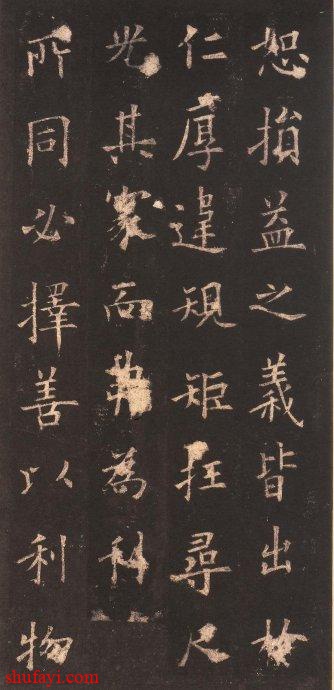 恕損益之義皆出於
仁厚違規矩枉尋尺
光其而為
所同必擇善以利物
shufayi.com